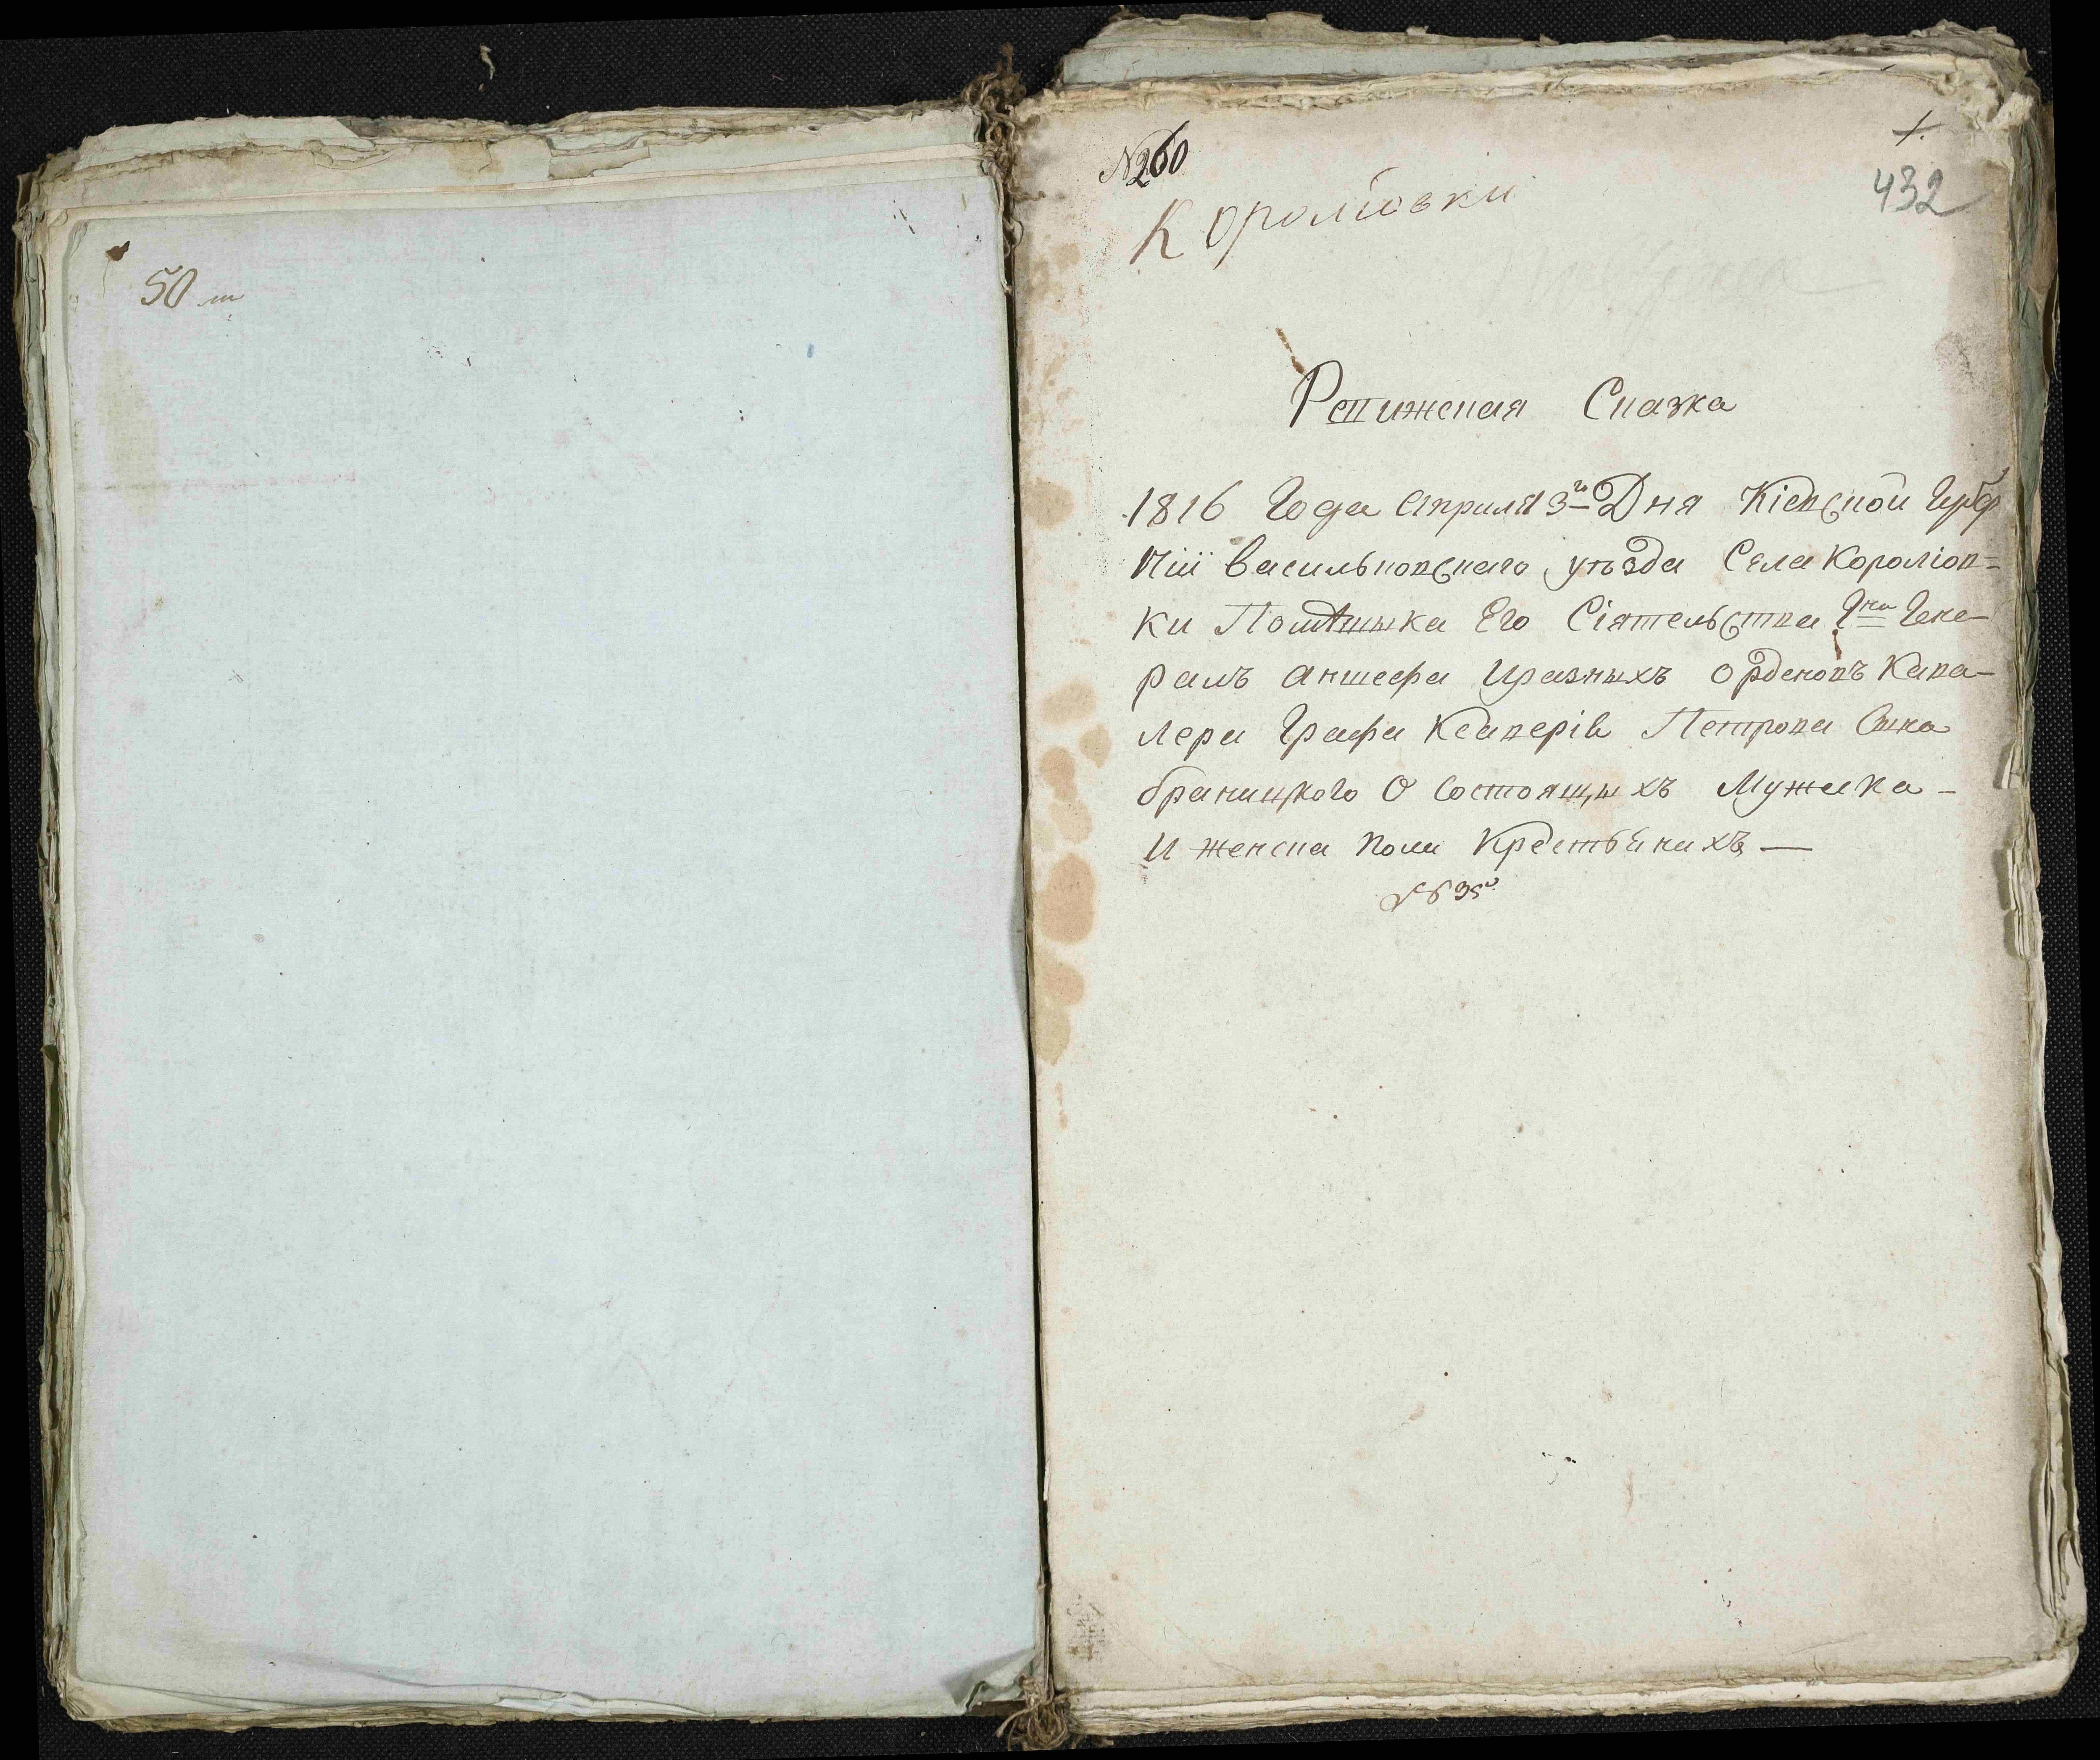 50 ш
№ 260
1.
432
Кородіовки
Ревижская Сказка
1816 Года Априля 3го Дня Кіевской Губер
ніи васильковскаго уѣзда Села Короліов=
ки Помѣщыка Его Сіятельства Гна Гене-
ралъ аншефа Иразныхъ орденовъ Кава-
лера Графа Ксаверія Петрова Сына
браницкого О Состоящыхъ Мужска -
И женска пола Крестьянахъ —